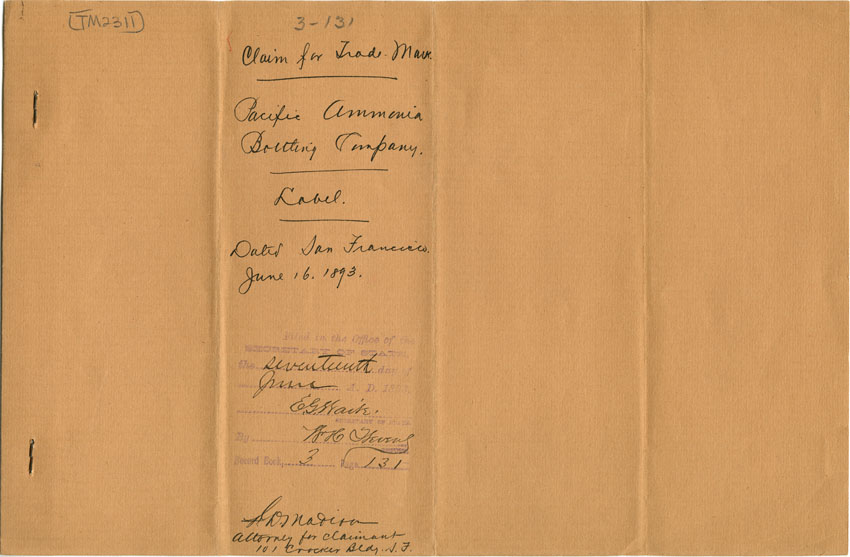 [TM2311]
3-131
Claim for Trade-Mark
Pacific Ammonia
Bottling Company.
Label.
Dated San Francisco.
June 16. 1893.
Filed in the Office of the
SECRETARY OF STATE,
the seventeenth day of
June A. D. 189
E G Waite.
SECRETARY OF STATE
By W H
Record Book, 3 Page 131
Madison
Attorney for Claimant
101 Crocker Bldg. S. F.